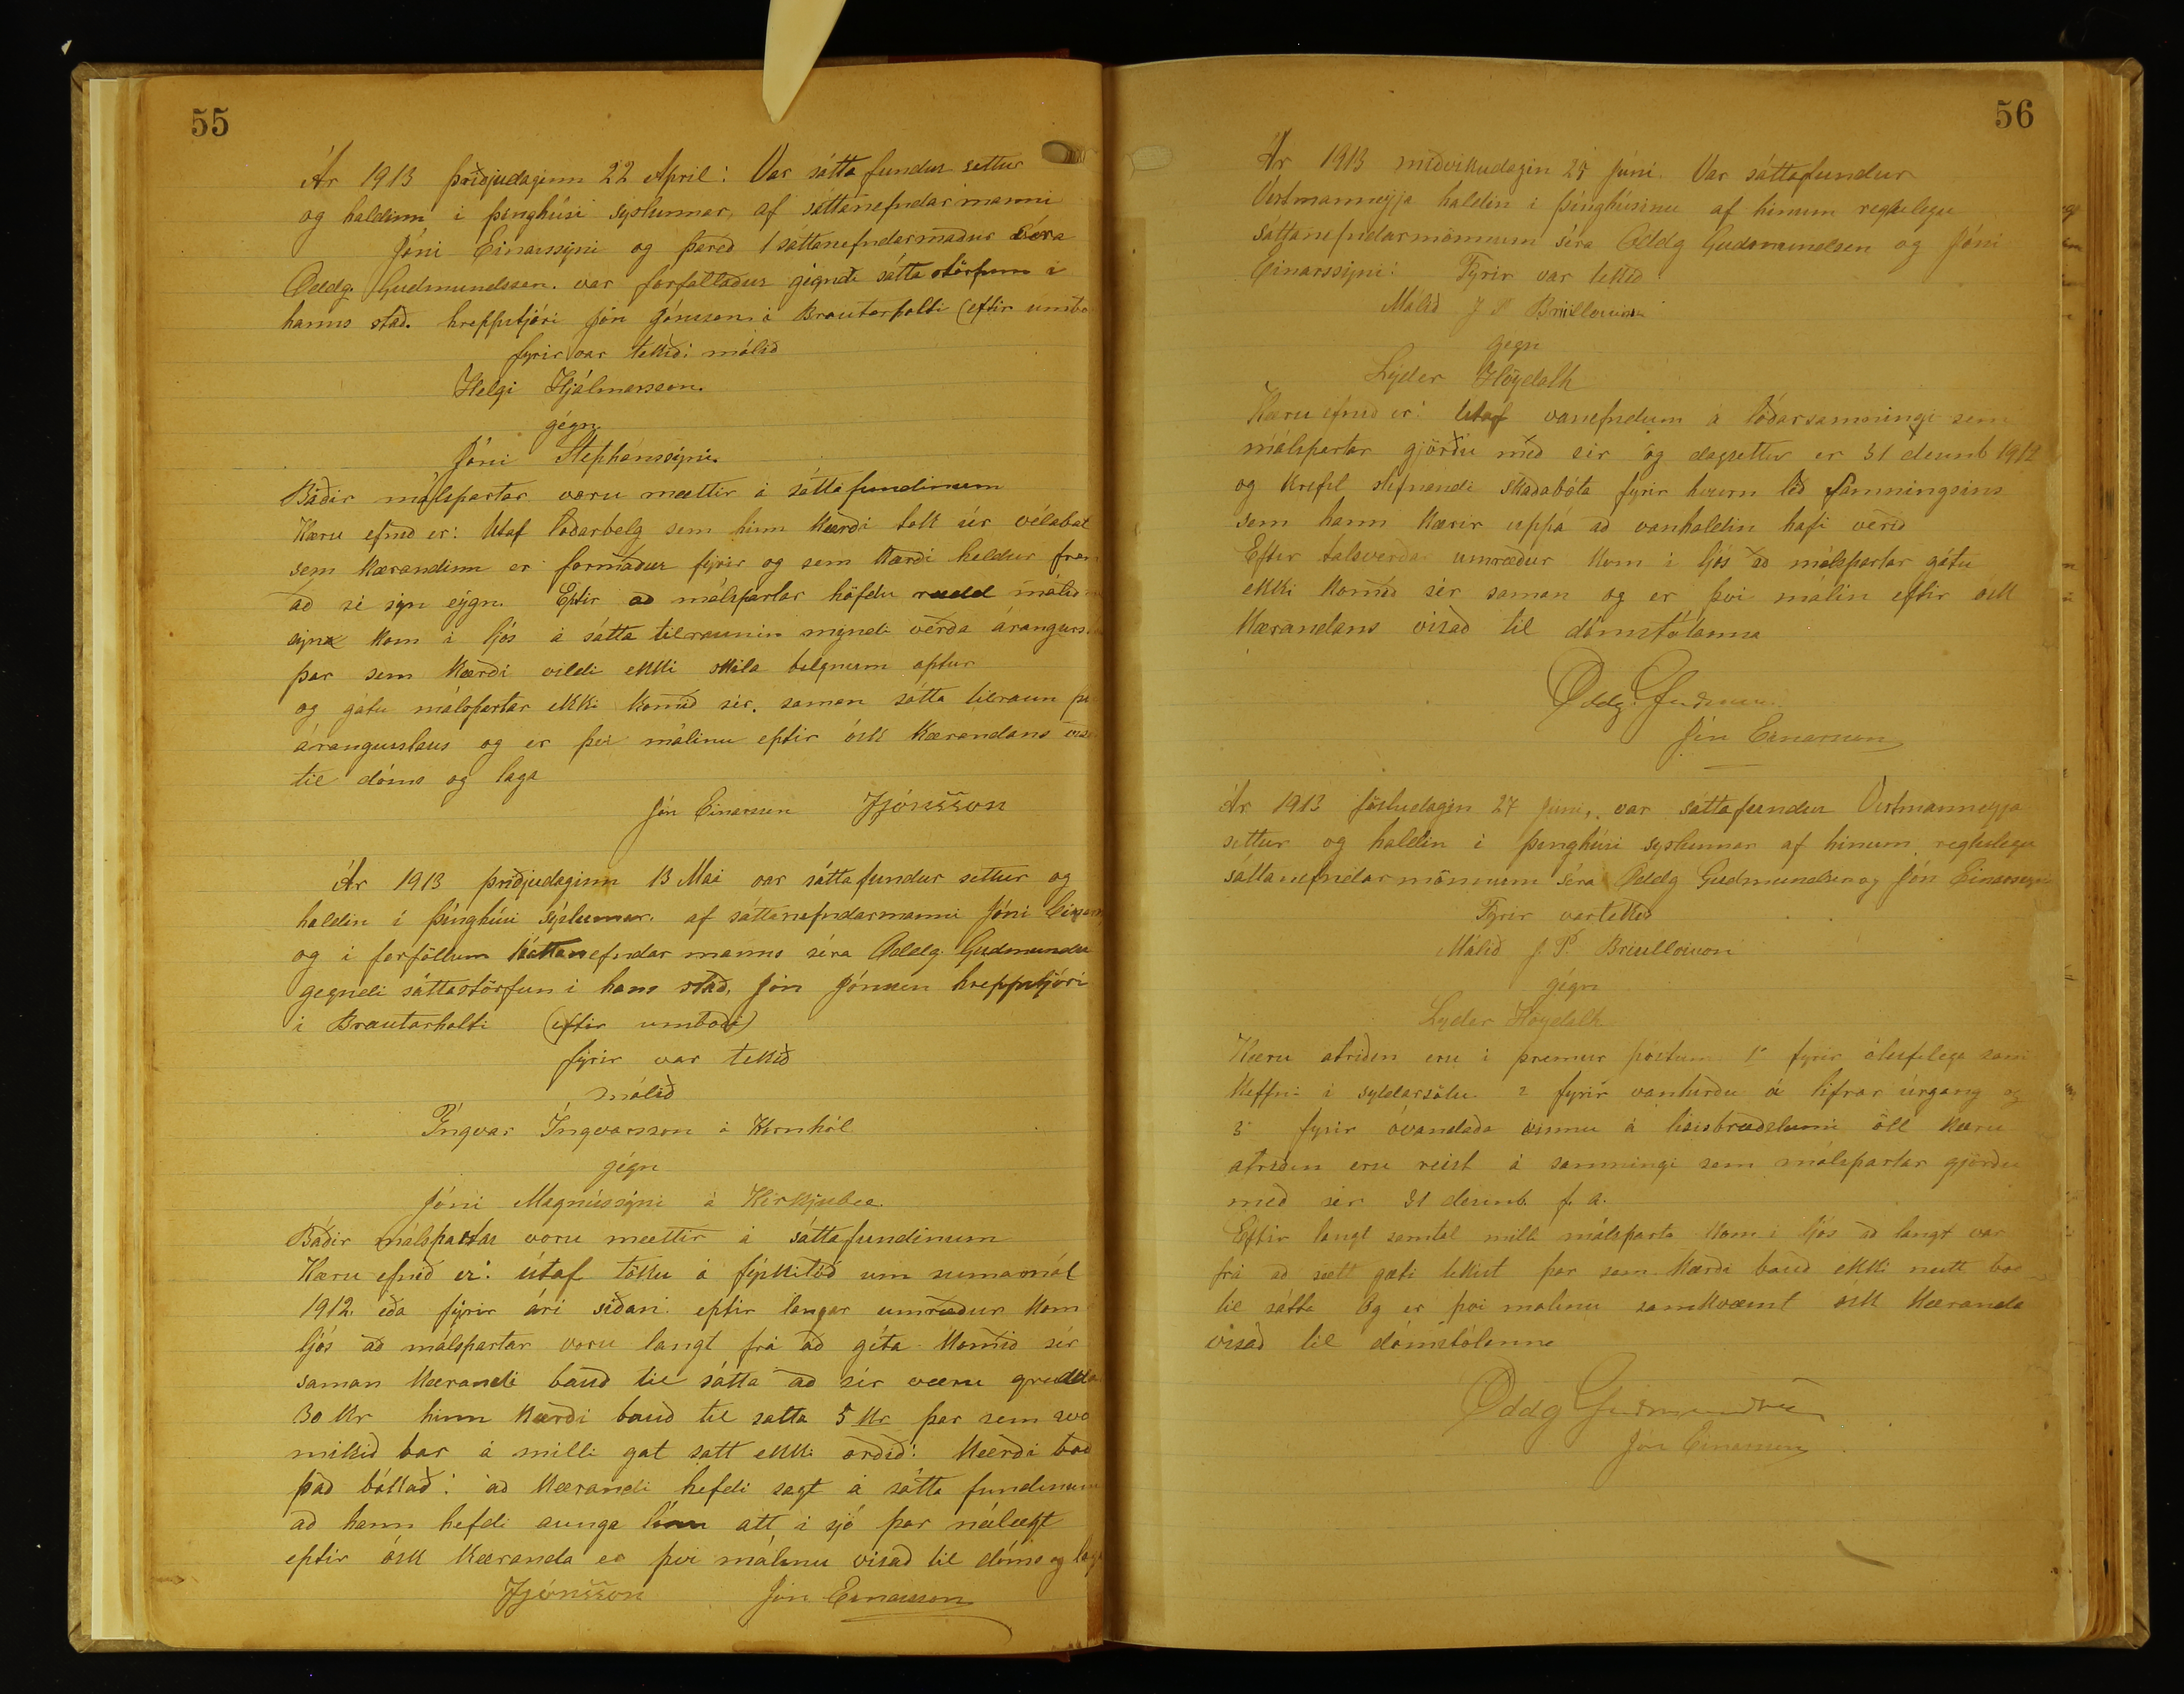 55
Ár 1913 þriðjudaginn 22 April: Var sátta fundur settur
og haldinn i þinghúsi sýslunnar, af sáttanefndar manni
Jóni Einarssýni og þareð 1 sáttanefndarmaður Séra
Oddg. Gudmundssen. var forfallaður gégndi sátta störfum i
hanns stað. hreppstjóri Jón Jónsson i Brautarholti (eftir umbo
fyrir var tekið: málið
Helgi Hjálmarsson.
gégn.
Jóni Stephánssýni.
Báðir málspartar voru mættir á sáttafundinum
Kæru efnið er: Utaf loðarbelg sem hinn kærði tok úr vélabat
sem kærandinn er formaður fyrir og sem kærði heldur fram
að sé sýn eýgn. Eptir að málspartar höfdu rædd málið
sýna kom i ljós á sátta tilraunin myndi verða árangurs
þar sem kærði vildi ekki skila belgnum aptur
og gátu málspartar ekki komið sér. saman sátta tilraun þ
árangurslaus og er því málinu eptir ósk kærandans vís
til dóms og laga
Jón Einarsson JJónsson
Ár 1913 þriðjudaginn 13 Mai var sáttafundur settur og
haldin i þinghúsi sýslunnar. af sáttanefndarmanni Jóni Einars
og i forföllum sáttanefndar manns séra Oddg. Gudmunds
gegndi sáttastörfun i hans stað, Jón Jónsson hreppstjóri
i Brautarholti (eftir umboði)
fýrir var tekið
málið
Íngvar Íngvarsson á Kornhól
gégn
Jóni Magnússýni á Kirkjubæ.
Báðir málspartar voru mættir á sáttafundinum
Kæru efnið er: útaf töku á um sumarmál
1912. eða fýrir ári síðan. eptir langar umræður kom i
ljós að málspartar voru langt frá að géta komið sér
saman kærandi bauð til sátta að sér væru gredda
30 Kr hinn kærði bauð til satta 5 Kr þar sem svo
mikið bar á milli gat satt ekki orðið: Kærði bað
það bókað: að kærandi hefdi sagt á sátta fundinum
að hann hefdi aunga átt i sjó þar nálægt
eptir ósk kæranda er því málinu vísað til dóms og laga
JJónsson Jón Einarsson
56
Ár 1913 miðvikudagin Júni. Var sáttafundur
Vestmanneyja haldin i þinghúsinu af hinum reglulegu
sáttanefndarmönnum séra Oddg Gudmundsen og Jóni
Einarssýni: Fyrir var tekið
Málið J P Brüllowson
gegn
Lýder Höydalh
Kæru efnið er: Utaf vanefndum á samningi sem
málspartar gjörðu með sér og dagsettur er 31 desemb 1912
og krefst stefnandi skaðabóta fyrir hvern lið samningsins
sem hann kærir uppá að vanhaldin hafi verið
Eftir talsverða umræður kom i ljós að málspartar gátu
ekki komið sér saman og er því málin eftir ósk
Kærandans vísað til dómstólanna
Oddg. Gudmunds
Jón Einarsson
Ár 1913 föstudagin 27 Juni, var sáttafundur Vestmanneyja
settur og haldin i þinghúsi syslunnar af hinum reglulegu
sáttanefndarmönnum séra Oddg Gudmundsen og Jón Einarssyni
Fyrir var tekið
Málið J. P. Brüllowson
gégn
Lyder Höydalh
Kæru atriðin eru i þremur póstum 1° fyrir ólöflega sam
keffni i syldarsölu 2 fyrir vanhirðu á lifrar úrgang og
3 fyrir óvandaða vinnu á lisisbræðslunni öll kæru
atriðin eru reist á samningi sem málspartar gjörðu
með sér 31 desemb. f. a.
Eftir langt samtal milli málsparta kom i ljós að langt var
frá að sætt gæti tekist þar sem kærði bauð ekki neitt boð
til sátta Og er því malinu samkvæmt ósk kæranda
vísað til dómstólanna
Oddg Gudmundsen
Jón Einarsson